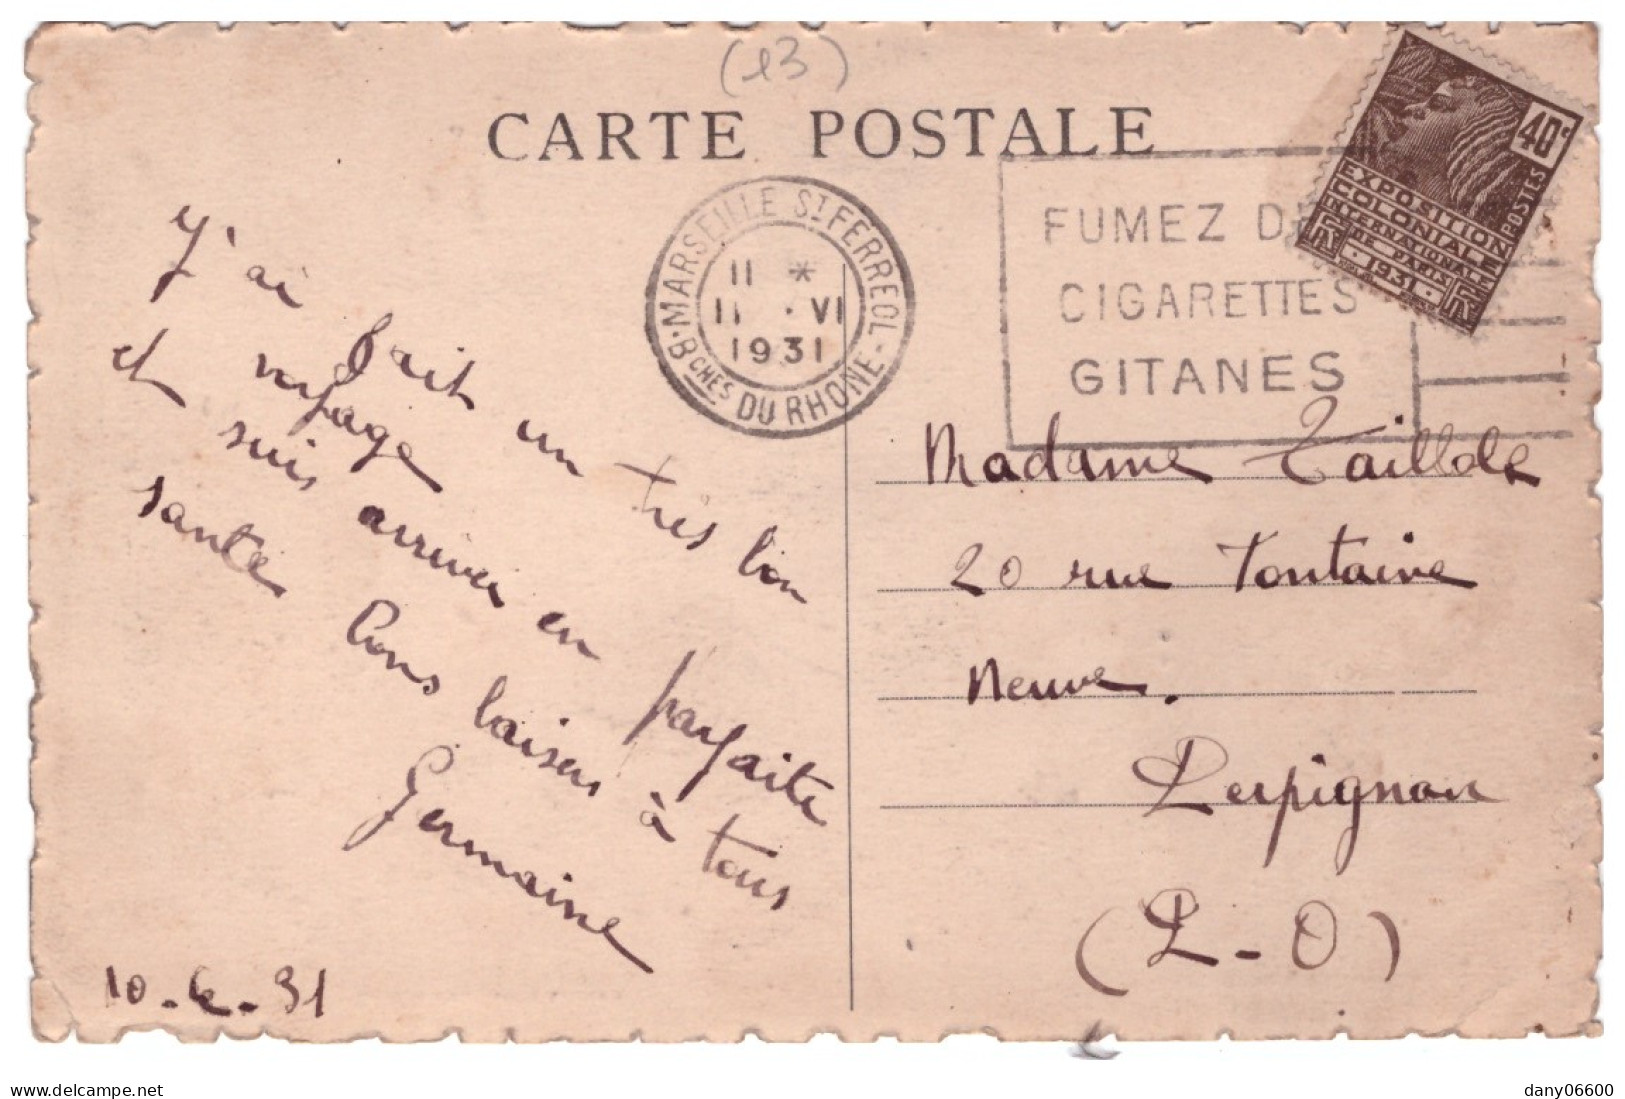 (13)
CARTE POSTALE
MARSEILLE ST FERREOL
11 *
11 · VI
1931
· BCHES DU RHONE ·
FUMEZ D
CIGARETTES
GITANES
40c
POSTES
EXPOSITION
COLONIALE
INTERNATIONALE
DE PARIS
· 1931 ·
RF RF
J'ai fait un très bon
voyage
et suis arrivée en parfaite
santé Bons baisers à tous
Germaine
10-6-31
Madame
20 rue Fontaine
Neuve.
Perpignan
(P-O)
delcampe.net
dany06600